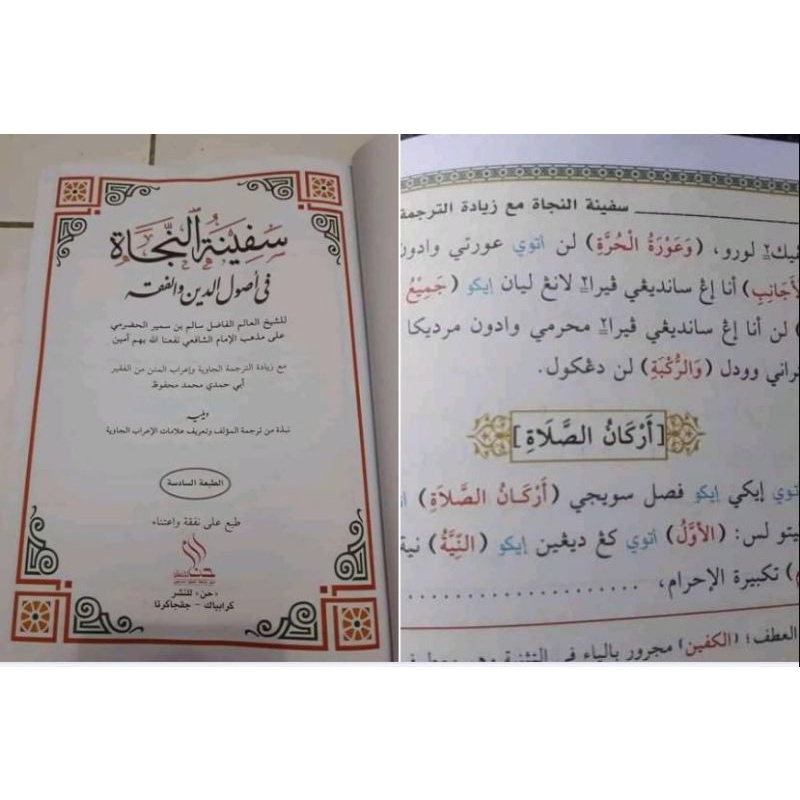 سفينة النجاة
في أصول الدين والفقه
للشيخ العالم الفاضل سالم بن سمير الحضرمي
على مذهب الإمام الشافعي نفعنا الله بهم آمين
مع زيادة الترجمة الجاوية وإعراب المتن من الفقير
أبي حمدي محمد محفوظ
ويليه
نبذة من ترجمة المؤلف وتعريف علامات الإعراب الجاوية
الطبعة السادسة
طبع على نفقة واعتناء
«حن» للنشر
كرابياك - جقجاكرتا
سفينة النجاة مع زيادة الترجمة
لورو، (وَعَوْرَةُ الْحُرَّةِ) لن اتوي عورتي وادون
أنا إڠ سانديڠي ڤيرا٢ لانڠ ليان إيكو (جَمِيْعُ
) لن أنا إڠ سانديڠي ڤيرا٢ محرمي وادون مرديكا
وودل (وَالرُّكْبَةِ) لن دڠكول.
[أَرْكَانُ الصَّلَاةِ]
إيكي إيكو فصل سويجي (أَرْكَانُ الصَّلَاةِ)
لس: (الأَوَّلُ) اتوي كڠ ديڠين إيكو (النِّيَّةُ)
) تكبيرة الإحرام، ....................
العطف؛ (الكفين) مجرور بالياء في التثنية